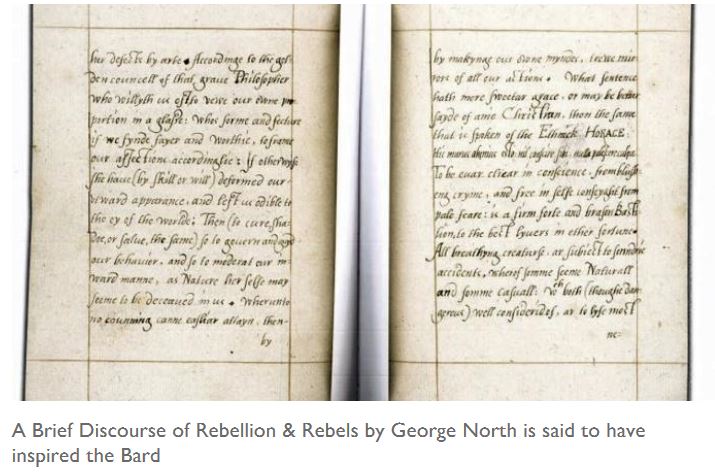 her defects by arte. Accordinge to the gol-
den councell of that grave Philosopher
who willyth us ofte to vewe our owne pro
portion in a glasse: whos forme and feature
if we fynde fayer and worthie, to frame
our affections accordinglie: if otherwyse
she have (by skill or will) deformed our
owtward apperance, and left us odible to
the ey of the worlde: Then (to cure, sha-
doe, or salve, the same) so to govern and gyd
our behavior, and so to moderat our in
ward manne, as Nature her selfe may
seeme to be deceaved in us. Wherunto
no counning canne easliar attayn, then-
by
by makynge our owne myndes, trewe mir-
rors of all our actions. What sentence
hath more sweetar grace, or may be bettar
sayde of anie Christian, thon the same
that is spoken of the Ethnick HORACE:
Hic murus abeneus esto nil conscire sibi, nulla palescere culpa
To be evar cliar in conscience, from blush-
eng cryme, and free in selfe conseyght from
pale feare: is a firm forte and brasen Bast-
tion, to the best lyvers in ether fortune.
All breathyng creaturs, ar subiect to sonndrie
accidents, wherof somme seeme Naturall
and somme Casuall: wch both (thoughe dan-
gerous) well considerid of, ar to lyfe most
ne-
A Brief Discourse of Rebellion & Rebels by George North is said to have
inspired the Bard